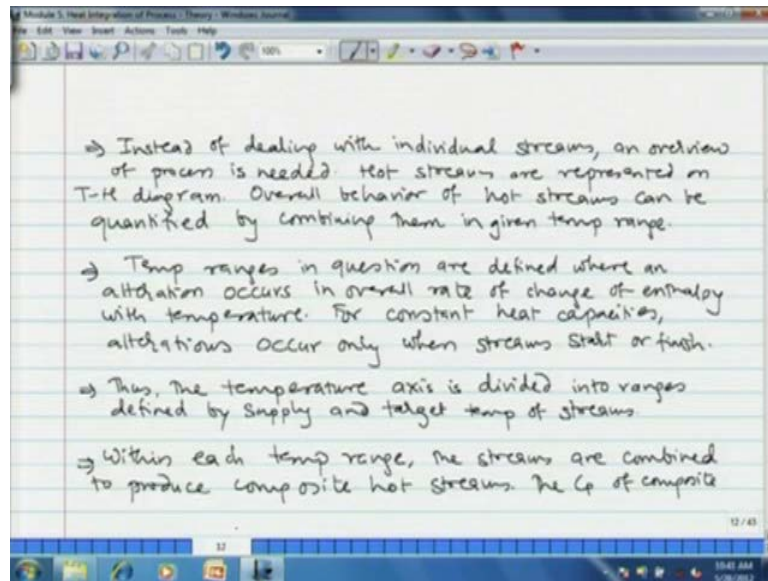 Module 5. Heat Integration of Process - Theory - Windows Journal
File Edit View Insert Actions Tools Help
100%
⇒ Instead of dealing with individual streams, an overview
of process is needed. Hot streams are represented on
T-H diagram. Overall behavior of hot streams can be
quantified by combining them in given temp range.
⇒ Temp ranges in question are defined where an
alteration occurs in overall rate of change of enthalpy
with temperature. For constant heat capacities,
alterations occur only when streams start or finish.
⇒ Thus, the temperature axis is divided into ranges
defined by supply and target temp of streams.
⇒ Within each temp range, the streams are combined
to produce composite hot streams. The Cp of composite
12/43
12
10:41 AM